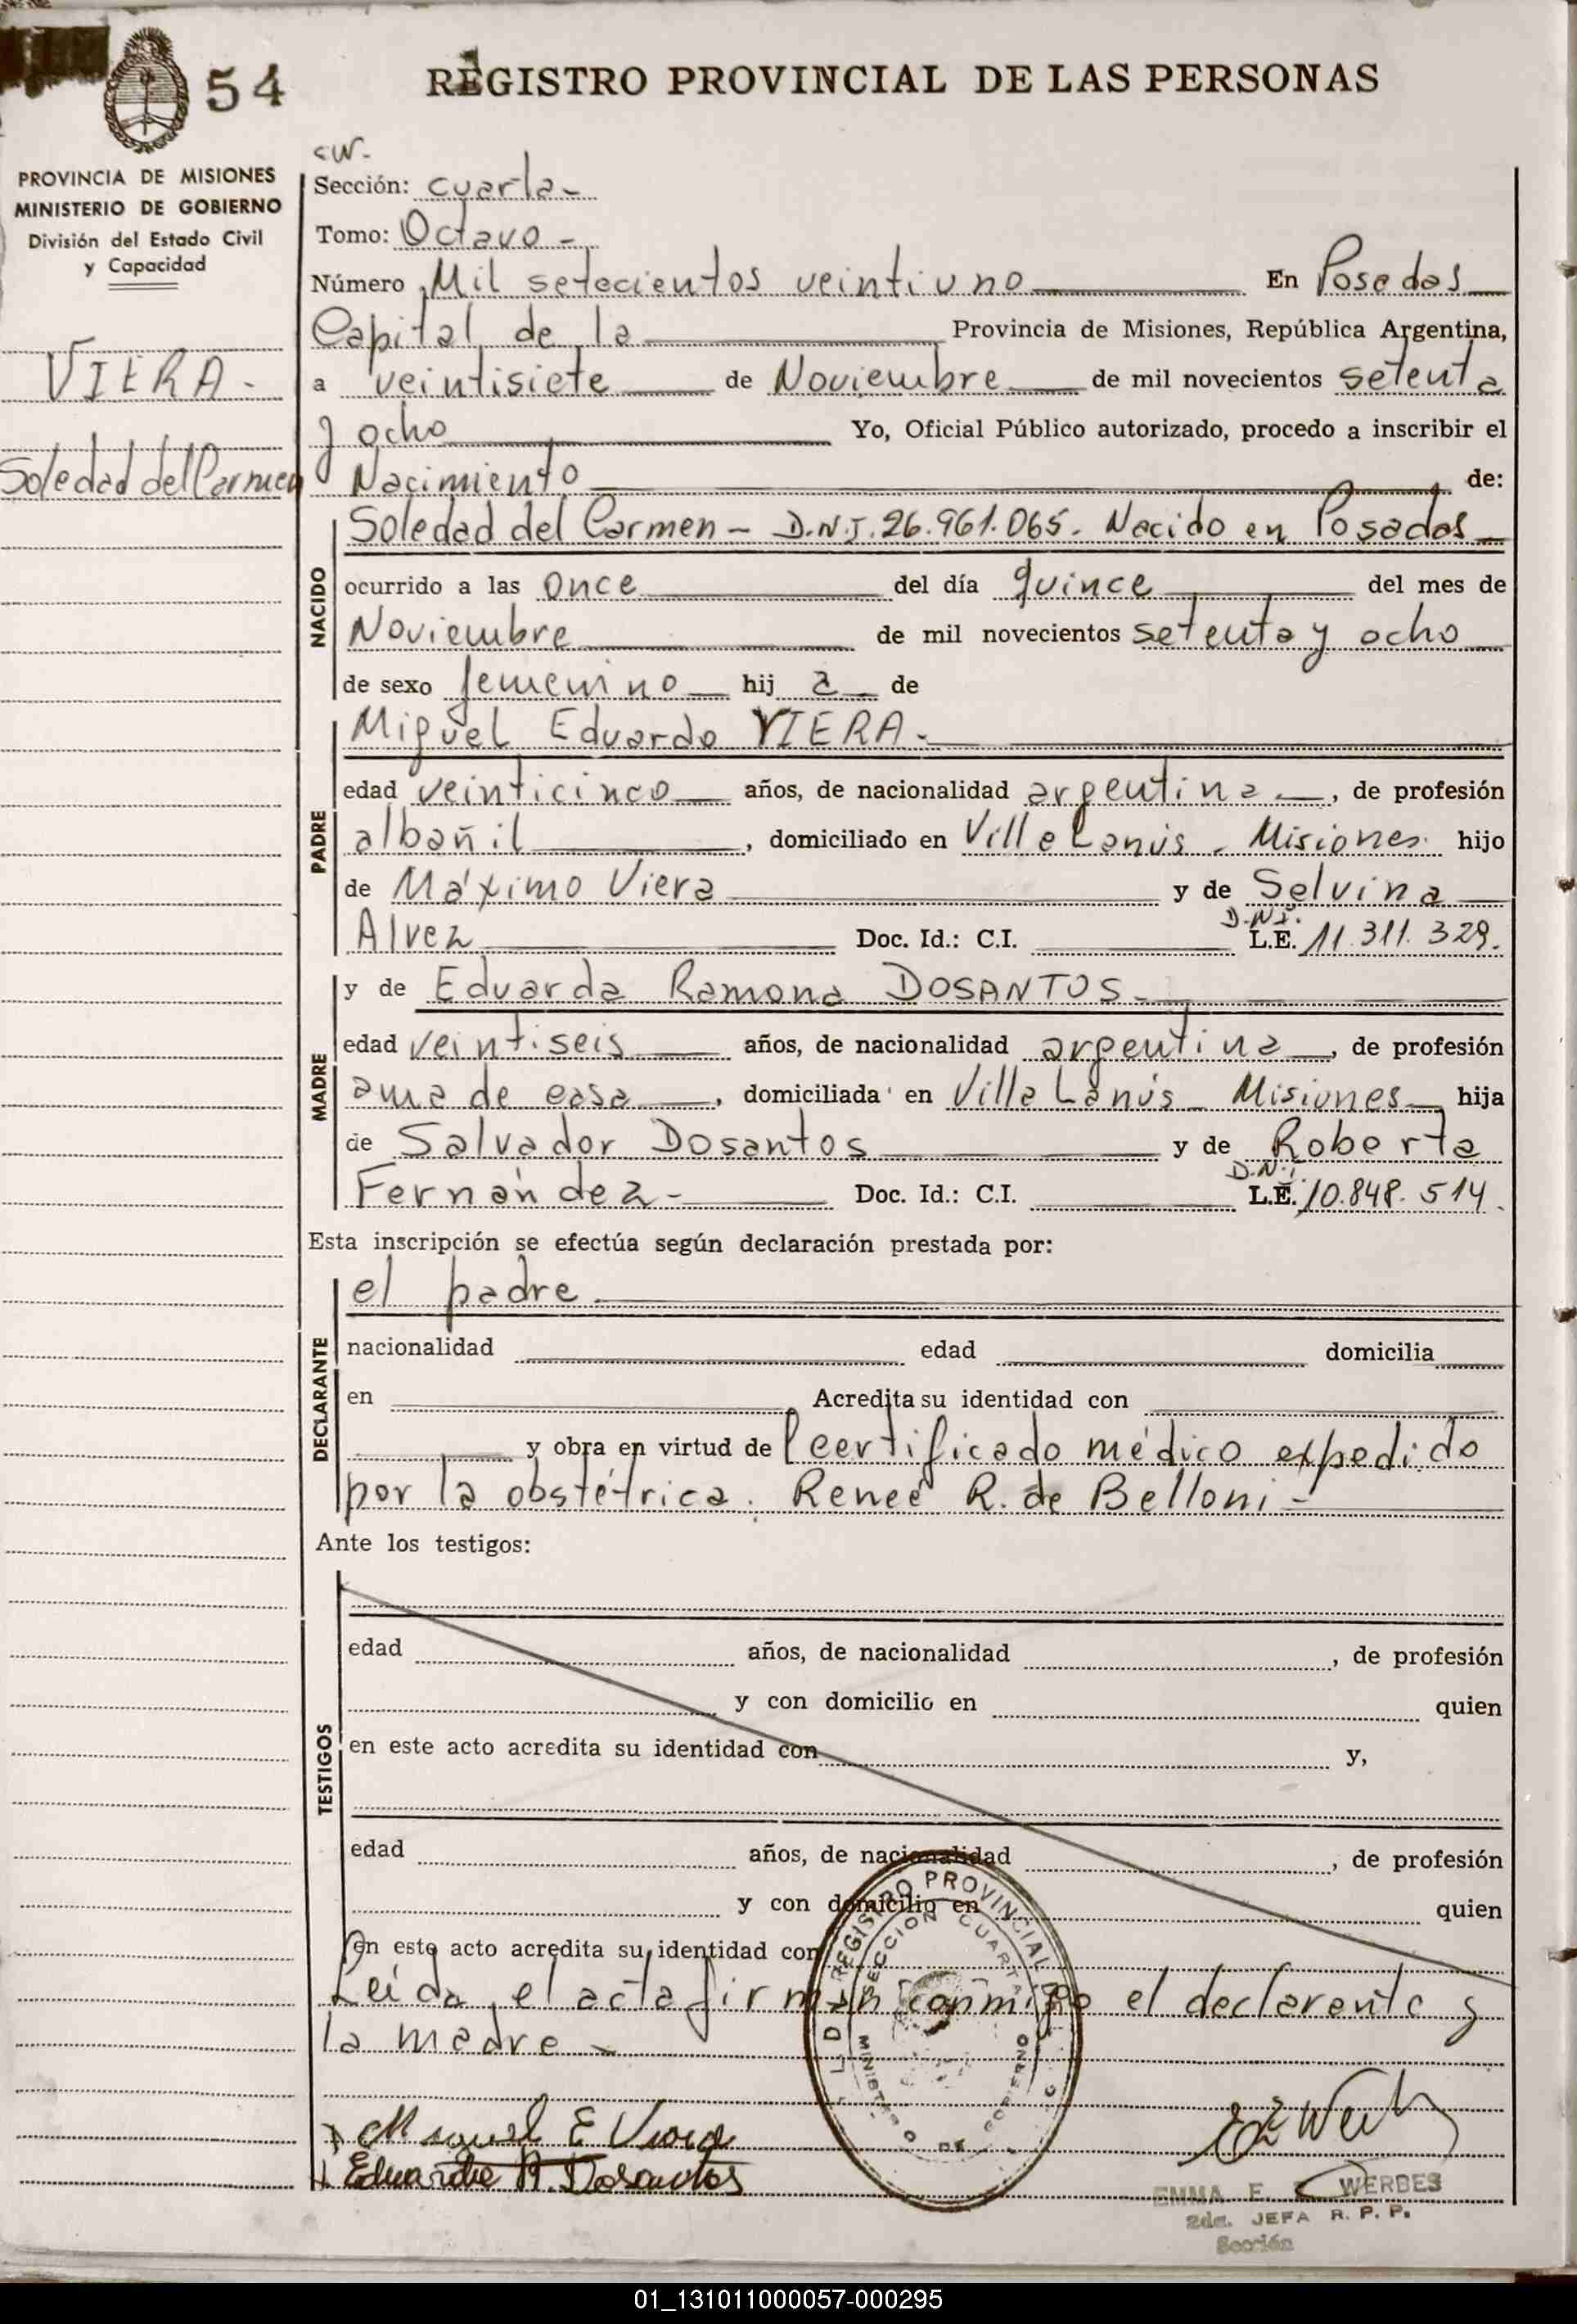 54
REGISTRO PROVINCIAL DE LAS PERSONAS
PROVINCIA DE MISIONES
MINISTERIO DE GOBIERNO
División del Estado Civil
y Capacidad
VIERA.
Soledad del Carmen
Sección: cuarta-
Tomo: Octavo-
Número Mil setecientos veintiuno En Posadas
Capital de la Provincia de Misiones, República Argentina,
a veintisiete de Noviembre de mil novecientos setenta
y ocho Yo, Oficial Público autorizado, procedo a inscribir el
Nacimiento de:
NACIDO
Soledad del Carmen - D.N.I. 26.961.065. Nacido en Posadas
ocurrido a las once del día quince del mes de
Noviembre de mil novecientos setenta y ocho
de sexo femenino hij a de
PADRE
Miguel Eduardo VIERA.
edad veinticinco años, de nacionalidad argentina, de profesión
albañil, domiciliado en Villa Lanús - Misiones hijo
de Máximo Viera y de Selvina
Alvez Doc. Id.: C.I. L.E. D.N.I. 11.311.329.
MADRE
y de Eduarda Ramona DOSANTOS-
edad veintiseis años, de nacionalidad argentina, de profesión
ama de casa, domiciliada en Villa Lanús - Misiones hija
de Salvador Dosantos y de Roberta
Fernández- Doc. Id.: C.I. L.E. D.N.I. 10.848.514.
Esta inscripción se efectúa según declaración prestada por:
DECLARANTE
el padre
nacionalidad edad domicilia
en Acredita su identidad con
y obra en virtud de l certificado médico expedido
por la obstétrica. Reneé R. de Belloni-
Ante los testigos:
TESTIGOS
edad años, de nacionalidad , de profesión
y con domicilio en quien
en este acto acredita su identidad con y,
edad años, de nacionalidad , de profesión
y con domicilio en quien
en este acto acredita su identidad con
Leída el acta firman conmigo el declarante y
la madre-
REGISTRO PROVINCIAL
SECCION CUARTA
MINISTERIO DE GOBIERNO
Miguel E Viera
Eduarda R. Dosantos
EMMA E. WERBES
2da. JEFA R. P. P.
Sección
01_131011000057-000295